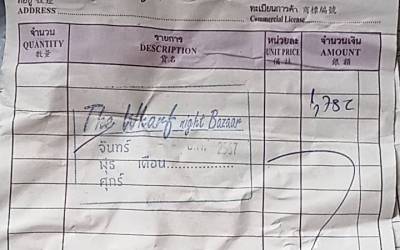 ที่อยู่ 住址 ทะเบียนการค้า 商標編號
ADDRESS Commercial License
จำนวน รายการ หน่วยละ จำนวนเงิน
QUANTITY DESCRIPTION UNIT PRICE AMOUNT
數量 貨名 價錢 銀額
1,782
The Wharf night Bazaar
จันทร์ 2567
พุธ เดือน
ศุกร์